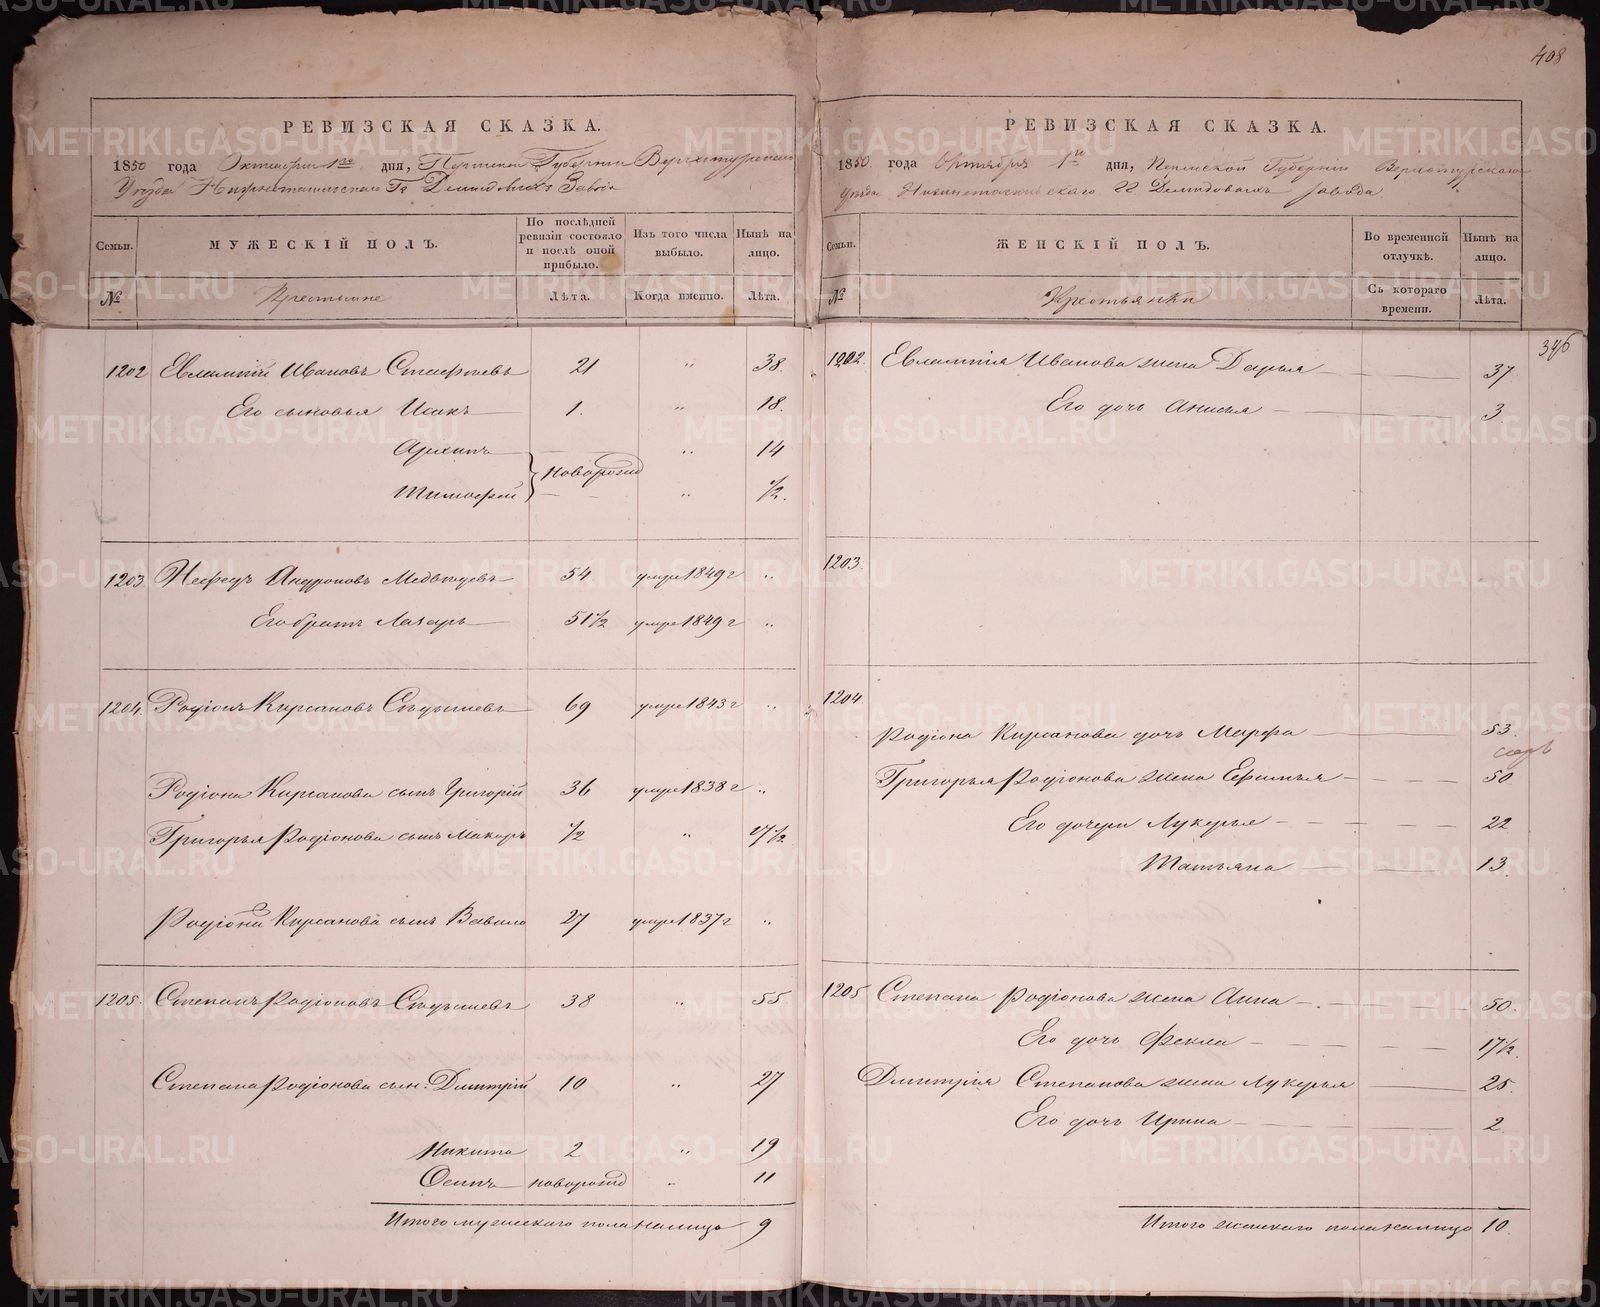 408
РЕВИЗСКАЯ СКАЗКА.
1850 года Октября 1го дня, Пермской Губернiи Верхотурскаго
Уѣзда Нижнетагильскаго Гг Демидовыхъ Завода
Семьи.
МУЖЕСКIЙ ПОЛЪ.
По послѣдней ревизiи состояло и послѣ оной прибыло.
Изъ того числа выбыло.
Нынѣ на лицо.
№
Крестьяне
Лѣта.
Когда именно.
Лѣта.
1202 Евлампiй Ивановъ 21 " 38.
Его сыновья Исакъ 1. " 18.
Архипъ " 14
Новорожд
Тимофей " 1/2.
1203 Андроновъ Медведевъ 54 умре 1849 г "
Его братъ Лазарь 51 1/2 умре 1849 г "
1204. Родiонъ Кирсановъ 69 умре 1843 г "
Родiона Кирсанова сынъ Григорiй 36 умре 1838 г "
Григорья Родiонова сынъ Макаръ 1/2 " 17 1/2
Родiона Кирсанова сынъ Вавило 27 умре 1837 г "
1205. Степанъ Родiоновъ 38 " 55
Степана Родiонова сын: Дмитрiй 10 " 27
Никита 2 " 19
Осипъ новорожд " 11
Итого мужескаго пола налицо 9
РЕВИЗСКАЯ СКАЗКА.
1850. года Октября 1го дня, Пермской Губернiи Верхотурскаго
Уѣзда Нижнетагильскаго ГГ Демидовыхъ завода
Семьи.
ЖЕНСКIЙ ПОЛЪ.
Во временной отлучкѣ.
Нынѣ на лицо.
№
Крестьянки
Съ котораго времени.
Лѣта.
346
1202. Евлампiя Иванова жена Дарья 37.
Его дочь Анисья 3
1203.
1204
Родiона Кирсанова дочь Марфа 53
Григорья Родiонова жена Ефимья 50
Его дочери Лукерья 22
Татьяна 13.
1205 Степана Родiонова жена Анна 50.
Его дочь Фекла 17 1/2.
Дмитрiя Степанова жена Лукерья 25.
Его дочь Ирина 2
Итого женскаго пола налицо 10.
METRIKI.GASO-URAL.RU